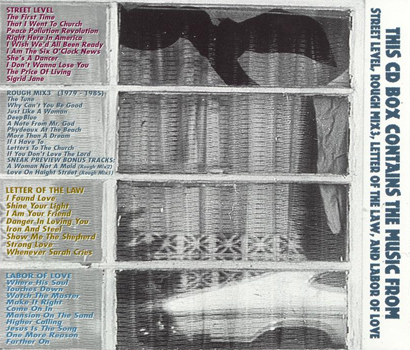 STREET LEVEL
The First Time
That I Went To Church
Peace Pollution Revolution
Right Here in America
I Wish We'd All Been Ready
I Am The Six O'Clock News
She's A Dancer
I Don't Wanna Lose You
The Price Of Living
Sigrid Jane
ROUGH MIX3 (1979 - 1985)
The Tune
Why Can't You Be Good
Just Like A Woman
DeepBlue
A Note From Mr. God
Phydeaux At The Beach
More Than A Dream
If I Have To
Letters To The Church
If You Don't Love The Lord
SNEAK PREVIEW BONUS TRACKS:
A Woman Not A Maid (Rough Mix2)
Love On Haight Street (Rough Mix1)
LETTER OF THE LAW
I Found Love
Shine Your Light
I Am Your Friend
Danger In Loving You
Iron And Steel
Show Me The Shepherd
Strong Love
Whenever Sarah Cries
LABOR OF LOVE
Where His Soul
Touches Down
Watch The Master
Make It Right
Come On In
Mansion On The Sand
Higher Calling
Jesus Is The Song
One More Reason
Further On
THIS CD BOX CONTAINS THE MUSIC FROM
STREET LEVEL, ROUGH MIX3, LETTER OF THE LAW, AND LABOR OF LOVE